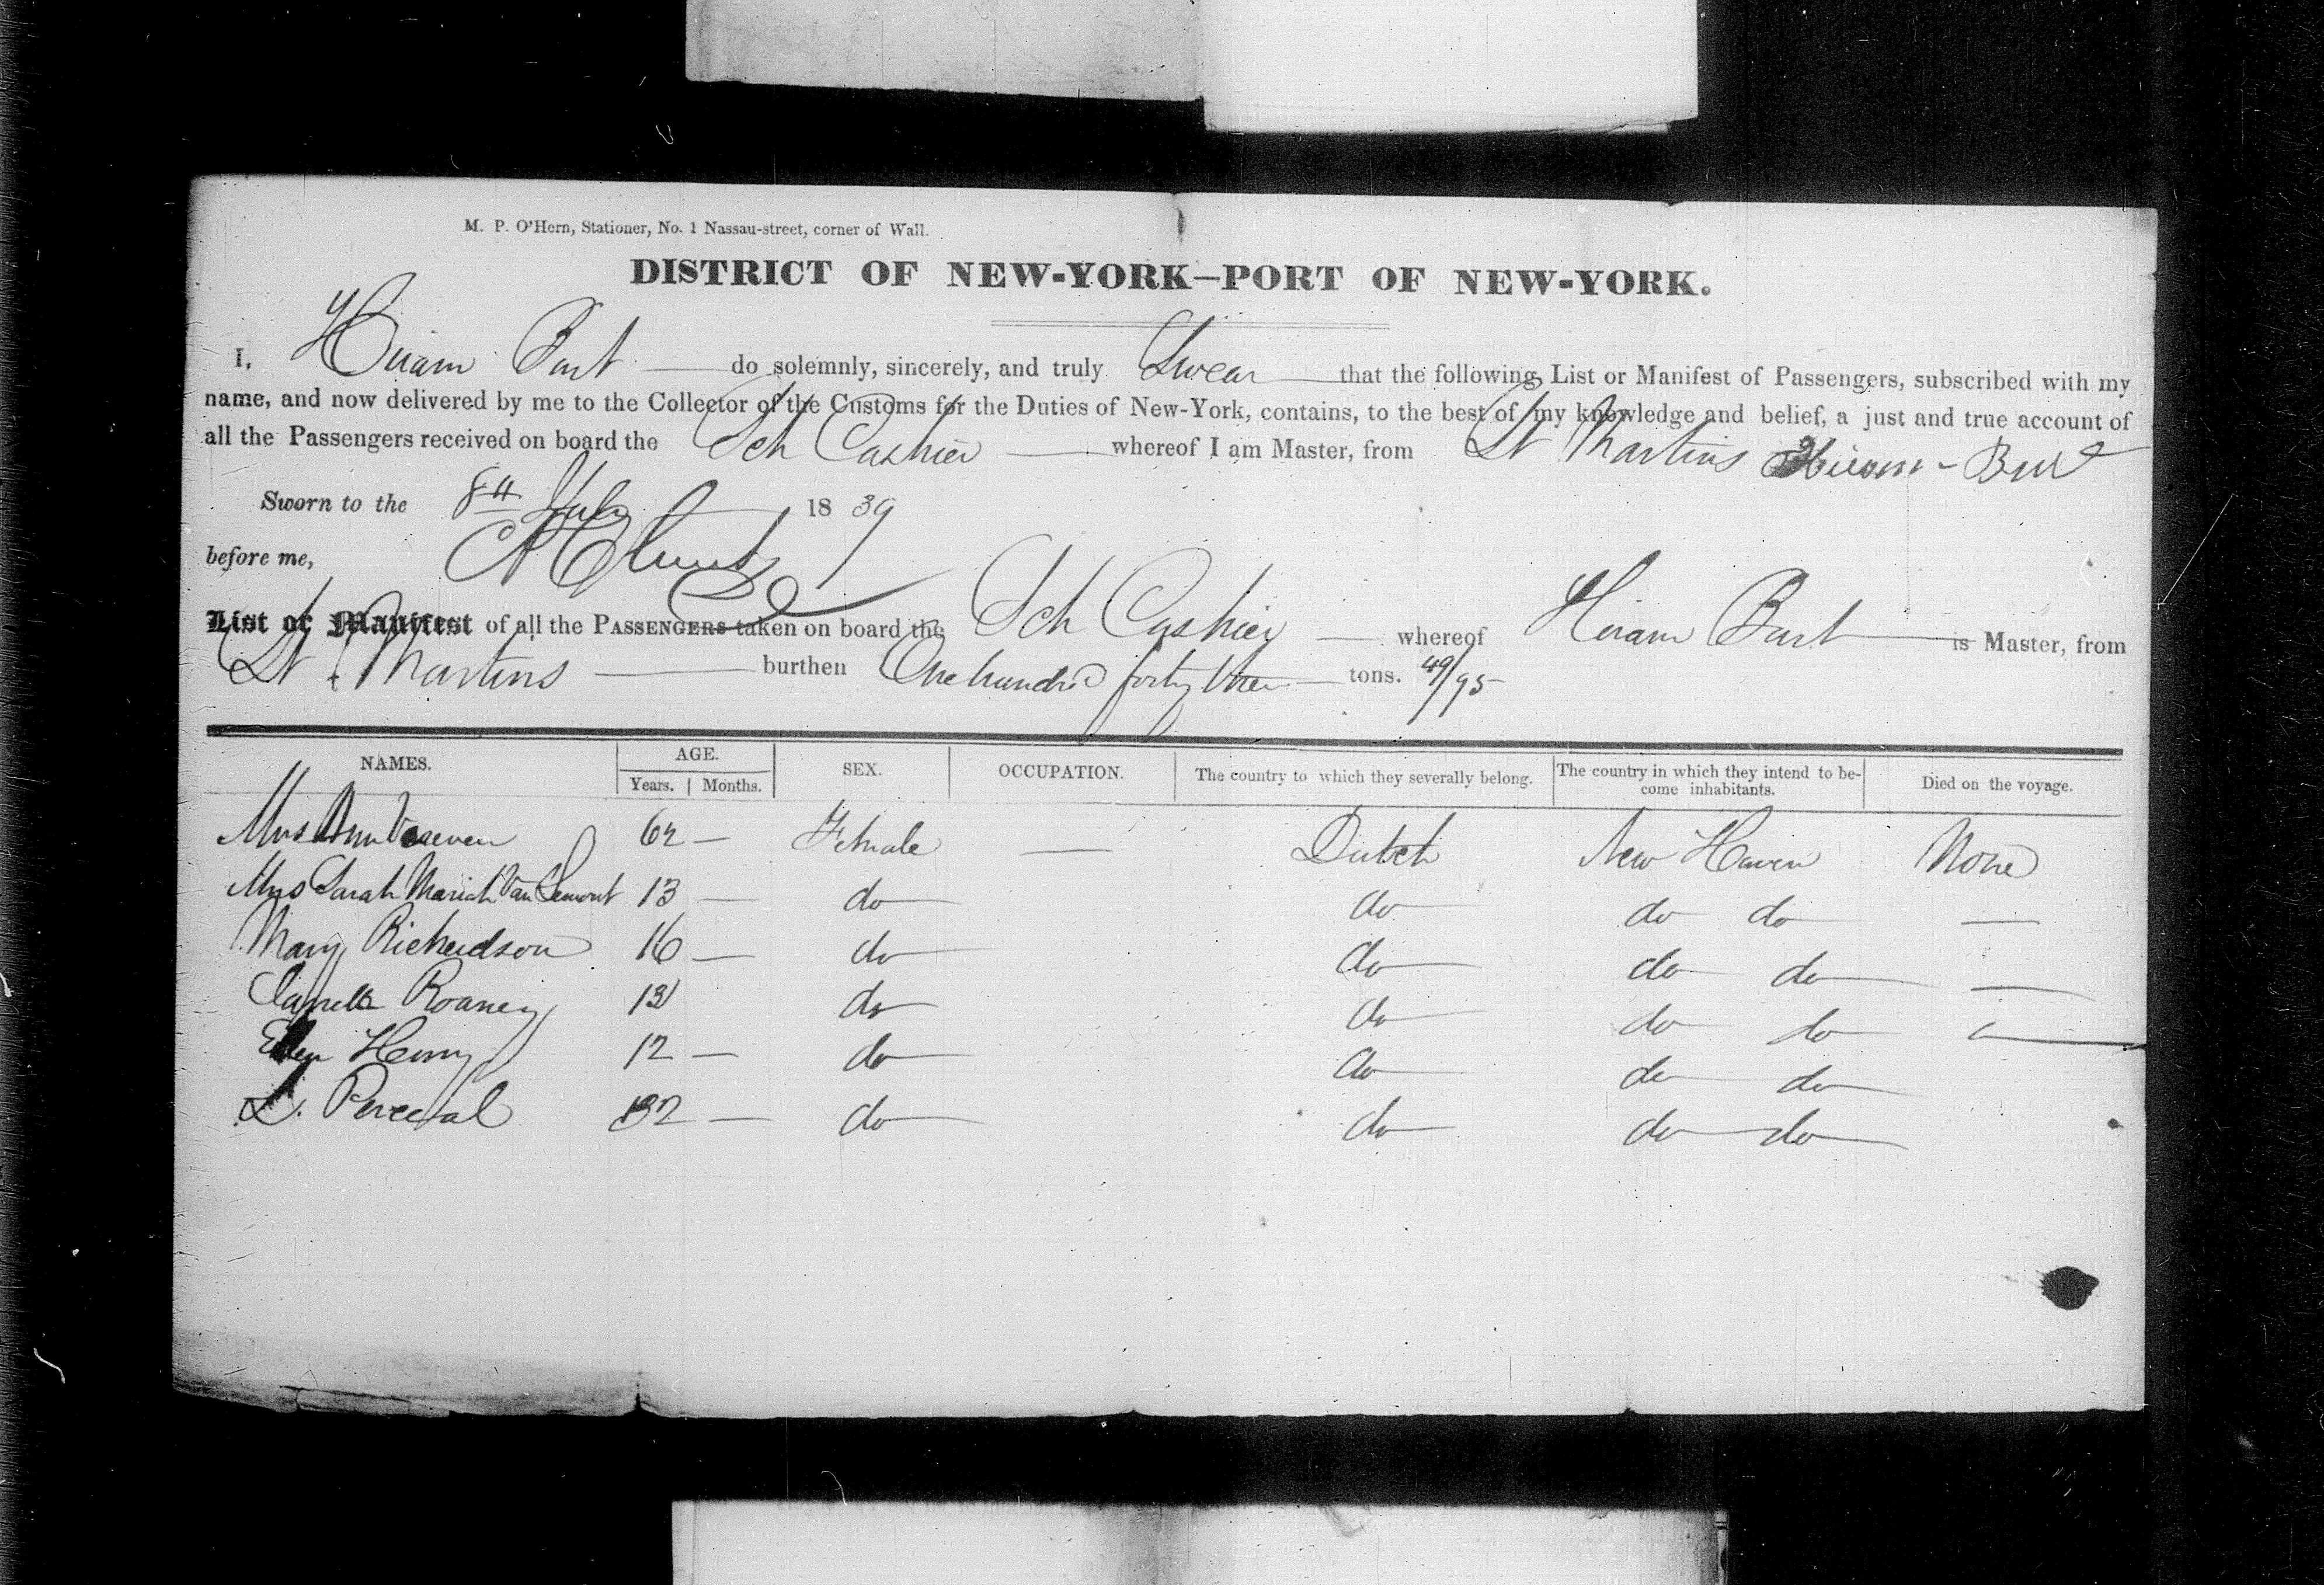 M. P. O'Hern, Stationer, No. 1 Nassau-street, corner of Wall.
DISTRICT OF NEW-YORK—PORT OF NEW-YORK.
I, Hiram Burt do solemnly, sincerely, and truly Swear that the following List or Manifest of Passengers, subscribed with my
name, and now delivered by me to the Collector of the Customs for the Duties of New-York, contains, to the best of my knowledge and belief, a just and true account of
all the Passengers received on board the Sch Cashier whereof I am Master, from St Martins Hiram Burt
Sworn to the 8th July 1839
before me,
List or Manifest of all the PASSENGERS taken on board the Sch Cashier whereof Hiram Burt is Master, from
St Martins burthen One hundred forty three tons. 49/95
NAMES. AGE. SEX. OCCUPATION. The country to which they severally belong. The country in which they intend to be-
come inhabitants. Died on the voyage.
Years. Months.
Mrs Ann 62 — Female — Dutch New Haven None
Mrs Sarah Mariah Van 13 — do do do do —
Mary Richardson 16 — do do do do —
Roaney 13 do do do do —
Ellen Henry 12 — do do do do
L. Percival 32 — do do do do